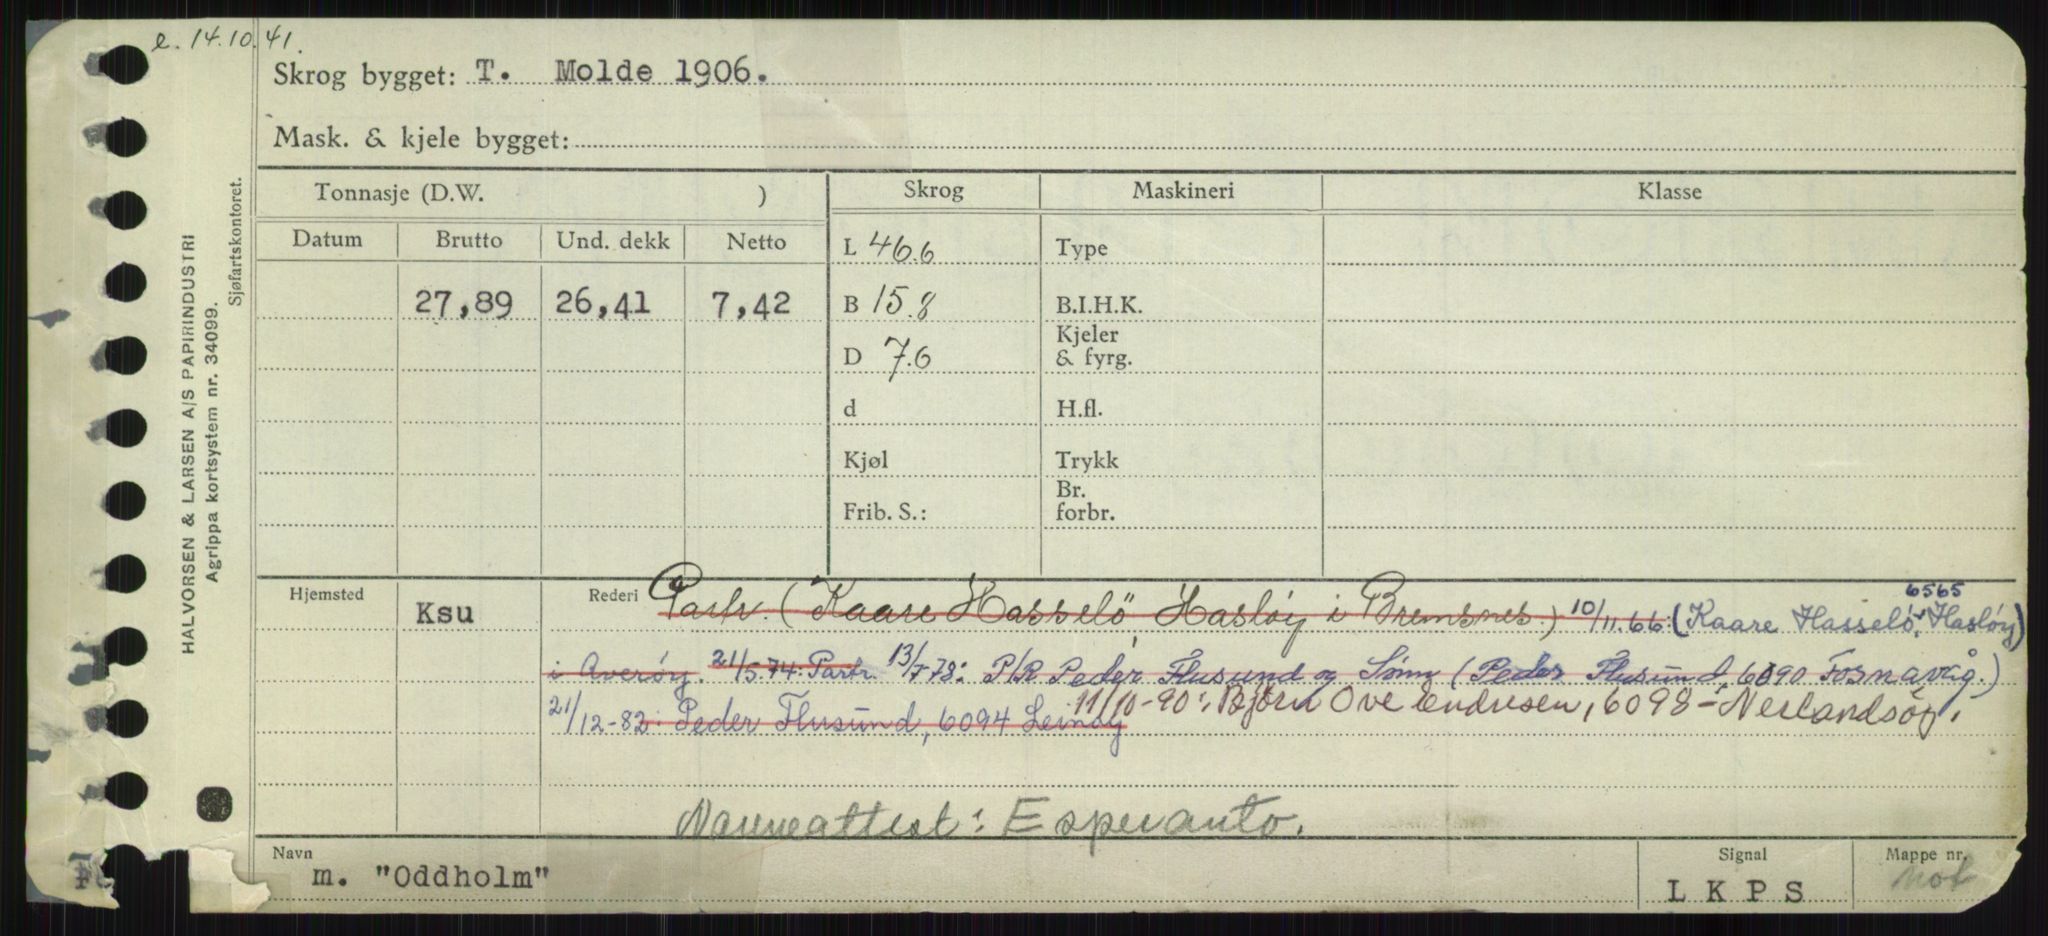 e. 14.10.41.
Skrog bygget: T. Molde 1906.
Mask. & kjele bygget:
HALVORSEN & LARSEN A/S PAPIRINDUSTRI
Agrippa kortsystem nr. 34099.
Sjøfartskontoret.
Tonnasje (D.W. ) Skrog Maskineri Klasse
Datum Brutto Und. dekk Netto
L 46.6 Type
27,89 26,41 7,42 B 15.8 B.I.H.K.
D 7.6 Kjeler & fyrg.
d H.fl.
Kjøl Trykk
Frib. S.: Br. forbr.
6565
Hjemsted Ksu Rederi Partr. (Kaare Hasselö, Hasløy i Bremsnes.) 10/11.66 (Kaare Hasselö, Hasløy)
i Averøy. 21/5.74: Partr. 13/7.78: P/R Peder Flusund og Sönn (Peder Flusund, 6090 Fosnavåg.)
21/12-82: Peder Flusund, 6094 Leinöy 11/10-90: Björn Ove Endresen, 6098 - Nerlandsöy.
Navneattest: Esperanto.
Navn m. "Oddholm" Signal L K P S Mappe nr.